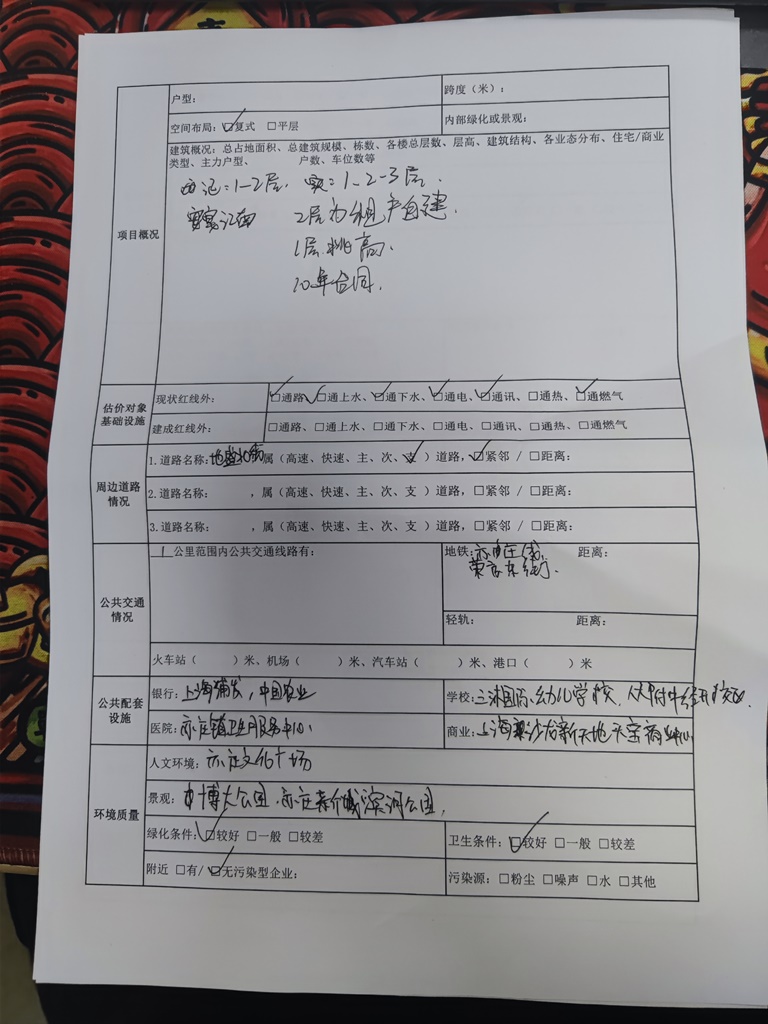 户型：
跨度（米）：
空间布局：☑复式 □平层
内部绿化或景观：
项目概况
建筑概况：总占地面积、总建筑规模、栋数、各楼总层数、层高、建筑结构、各业态分布、住宅/商业
类型、主力户型、 户数、车位数等
1-2层，实：1、2-3层。
2层为租户自建。
1层挑高。
10年合同。
估价对象
基础设施
现状红线外：
☑通路、☑通上水、☑通下水、☑通电、☑通讯、□通热、☑通燃气
建成红线外：
□通路、□通上水、□通下水、□通电、□通讯、□通热、□通燃气
周边道路
情况
1.道路名称：地盛北街 属（高速、快速、主、次、支✓）道路，☑紧邻 / □距离：
2.道路名称： ，属（高速、快速、主、次、支 ）道路，□紧邻 / □距离：
3.道路名称： ，属（高速、快速、主、次、支 ）道路，□紧邻 / □距离：
公共交通
情况
1 公里范围内公共交通线路有：
地铁：亦庄线、 距离：
荣京东街
轻轨： 距离：
火车站（ ）米、机场（ ）米、汽车站（ ）米、港口（ ）米
公共配套
设施
银行：上海浦发，中国农业
学校：国际幼儿学校，人大附中经开校区.
医院：亦庄镇卫生服务中心
商业：上海沙龙新天地 天宝商业中心
环境质量
人文环境：亦庄文化广场
景观：博大公园，亦庄滨河公园，
绿化条件：☑较好 □一般 □较差
卫生条件：☑较好 □一般 □较差
附近 □有/☑无污染型企业：
污染源：□粉尘 □噪声 □水 □其他